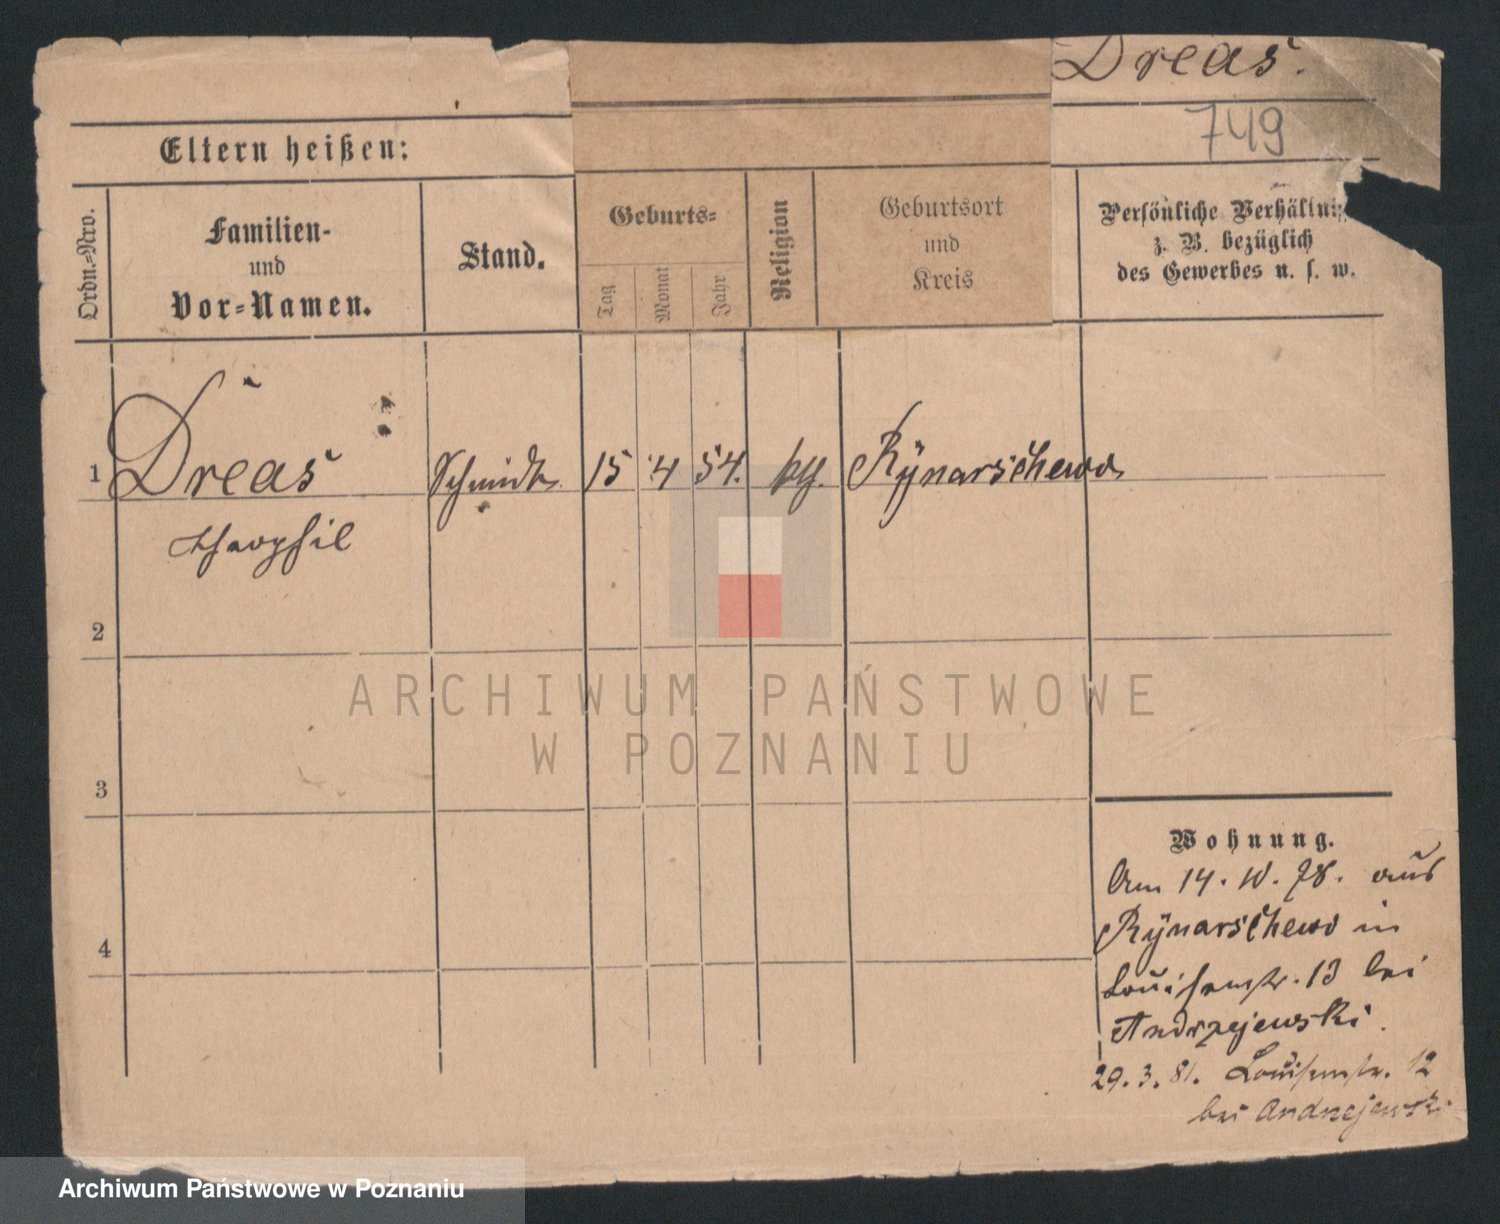 Dreas.
749
Eltern heißen:
Ordn.-Nro.
Familien-
und
Vor-Namen.
Stand.
Geburts-
Tag
Monat
Jahr
Religion
Geburtsort
und
Kreis
Persönliche Verhältni
z. B. bezüglich
des Gewerbes u. s. w.
1 Dreas Schmidt 15 4 54. kth. Rynarschewo
Theophil
2
3
4
Wohnung.
Am 14. 10. 78. aus
Rynarschewo in
Louisenstr. 13 bei
Andrzejewski.
29. 3. 81. Louisenstr. 12
bei Andrzejewski
ARCHIWUM PAŃSTWOWE
W POZNANIU
Archiwum Państwowe w Poznaniu